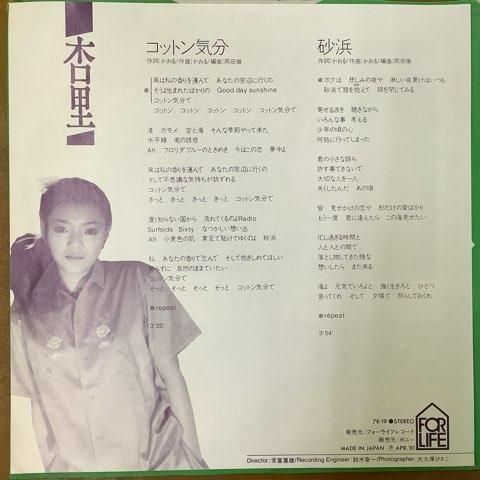 杏里
コットン気分
作詞:かおる/作曲:かおる/編曲:岡田徹
※風は私の香りを運んで あなたの窓辺に行くの
そうよ生まれたばかりの Good day sunshine
コットン気分で
コットン コットン コットン コットン コットン気分で
渚 カモメ 空と海 そんな季節やって来た
水平線 南の誘惑
Ah フロリダブルーのときめき 今はこの恋 夢中よ
風は私の香りを運んで あなたの窓辺に行くの
そして不思議な気持ちが訪ずれる
コットン気分で
きっと きっと きっと きっと コットン気分で
遠く知らない国から 流れてくるのよRadio
Surfside Sixty なつかしい想い出
Ah 小麦色の肌 素足で駆けてゆくのよ 砂浜
私 あなたの香りで包んで そして抱きしめてほしい
ずに 自然のままでいたい
コットン気分で
そっと そっと そっと そっと コットン気分で
※repeat
3'25"
砂浜
作詞:かおる/作曲:かおる/編曲:岡田徹
※ボクは 悲しみの夜や 淋しい夜更けはいつも
砂浜で膝を抱えて 眼を閉じてみる
寄せる波を 聴きながら
いろんな事 考える
少年の頃の心
何処に行ってしまった
君の小さな誤ち
許す事できないで
大切な人を一人
失くしたんだ あの頃
皆 見せかけの恋や 形だけの愛ばかり
もう一度 君に逢えたら この海見せたい
忙し過ぎる時間と
人と人との間で
落とし物してきた様な
想いしたら また来る
海よ 元気でいろよと 強く生きろと ひとつ
言ってくれ そして 夕陽で 照らしておくれ
※repeat
3'54"
7K-19 ●STEREO
発売元/フォーライフレコード
販売元/ポニー
MADE IN JAPAN Ⓟ APR.'81
FOR
LIFE
Director:常富喜雄/Recording Engineer:鈴木幸一/Photographer:大久保ひさこ